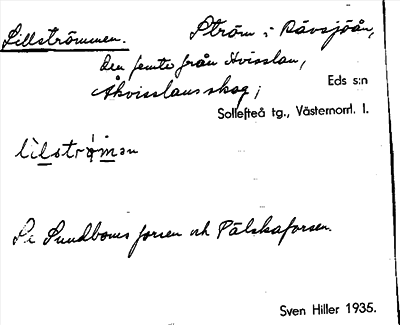 Lillströmmen. Ström i Rävsjöån,
den femte från Åvisslan,
Åkvisslans skog; Eds s:n
Sollefteå tg., Västernorrl. l.
lilströman
Se Sundboms forsen och Pälskaforsen.
Sven Hiller 1935.